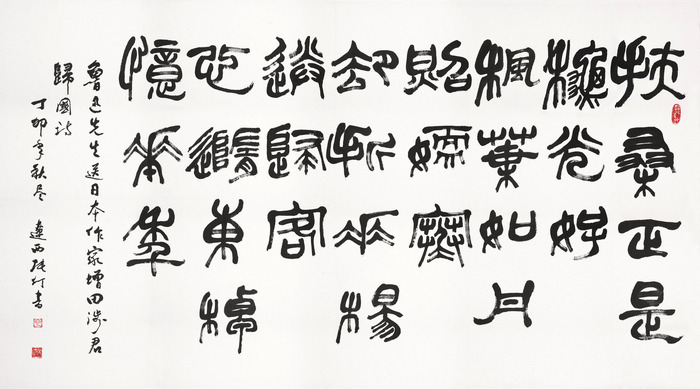 扶桑正是
龝光好
楓葉如丹
照嫩寒
却折垂楊
送歸客
心隨東棹
憶華年
魯迅先生送日本作家增田涉君
歸國詩
丁卯年秋尽 遼西張仃書